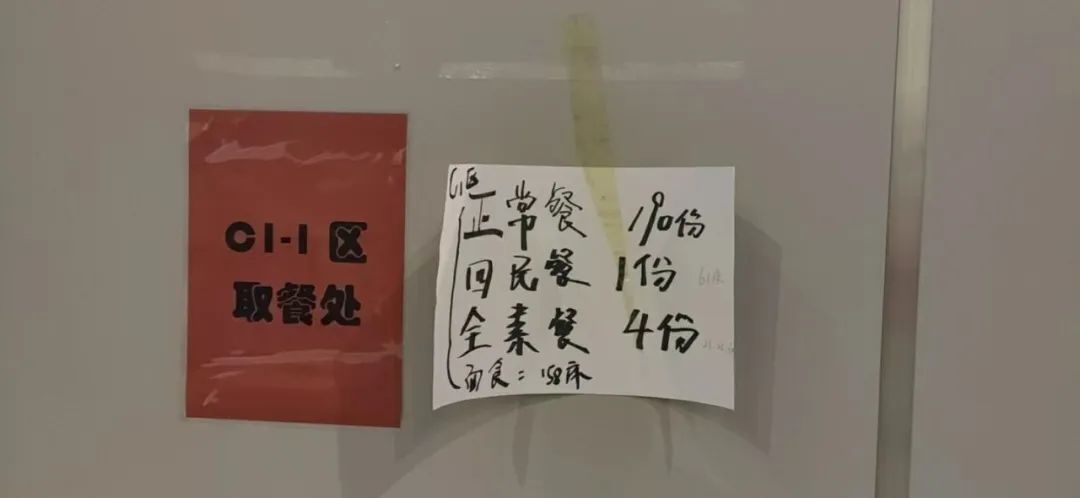 C1-1区
取餐处
正常餐 190份
回民餐 1份
全素餐 4份
面食：158床